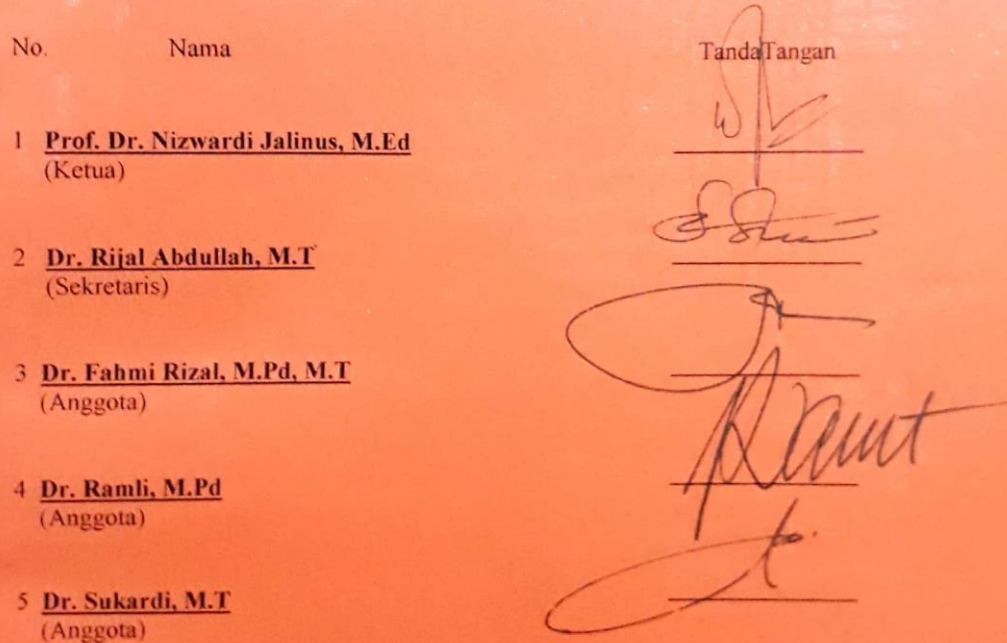 No. Nama TandaTangan
1 Prof. Dr. Nizwardi Jalinus, M.Ed
(Ketua)
2 Dr. Rijal Abdullah, M.T
(Sekretaris)
3 Dr. Fahmi Rizal, M.Pd, M.T
(Anggota)
4 Dr. Ramli, M.Pd
(Anggota)
5 Dr. Sukardi, M.T
(Anggota)